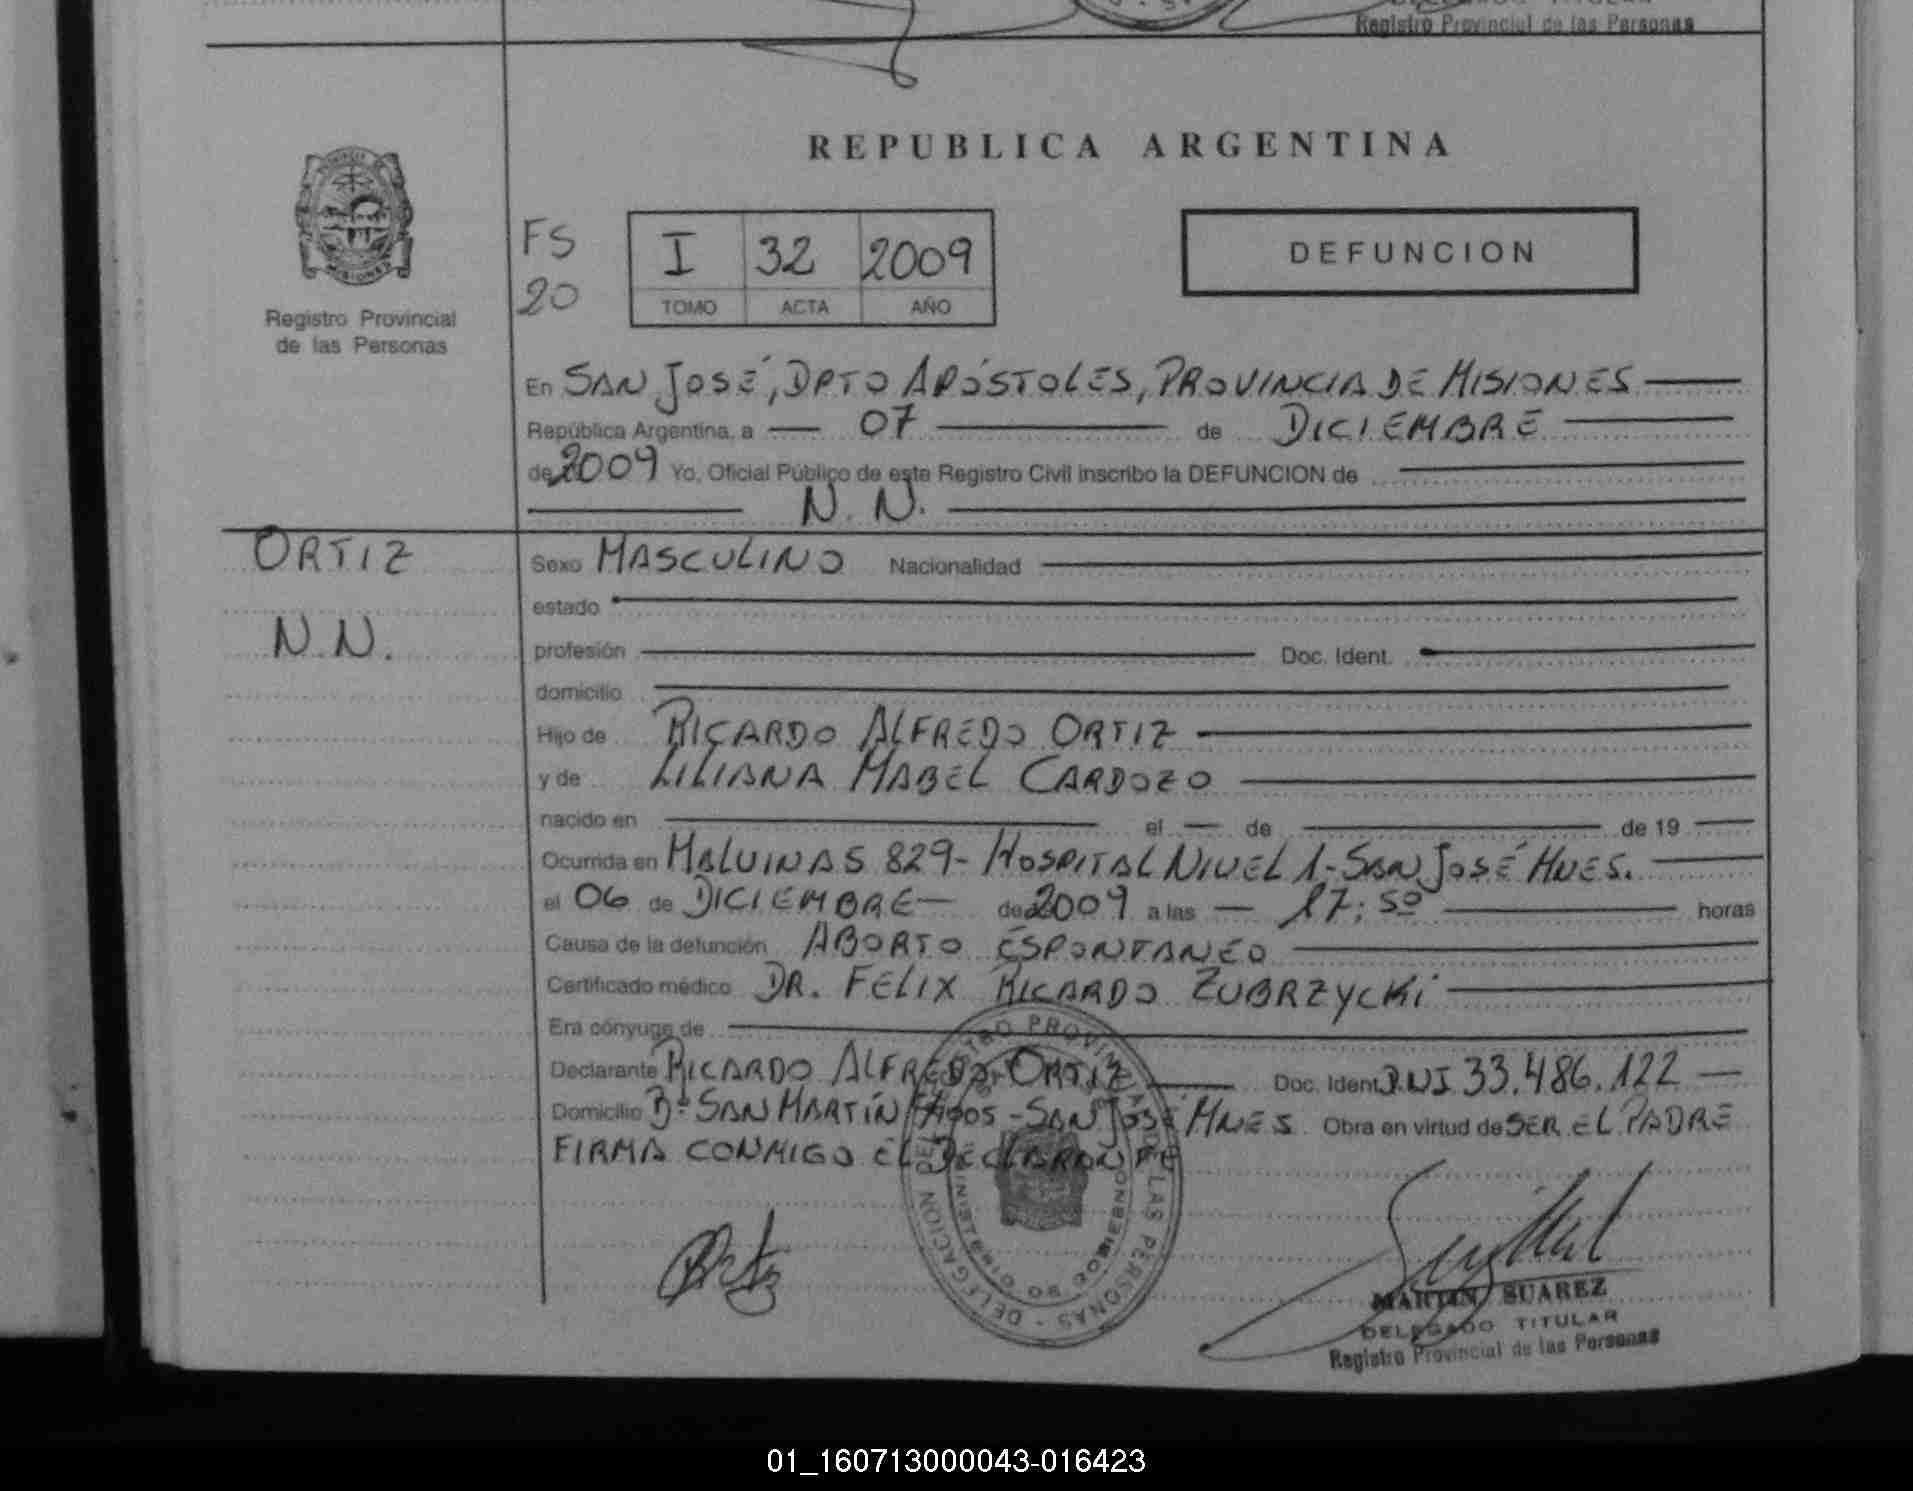 Registro Provincial de las Personas
REPUBLICA ARGENTINA
PROVINCIA DE
MISIONES
Registro Provincial
de las Personas
FS
20
I 32 2009
TOMO ACTA AÑO
DEFUNCION
En SAN JOSÉ, DPTO APÓSTOLES, PROVINCIA DE MISIONES
República Argentina, a 07 de DICIEMBRE
de 2009 Yo, Oficial Público de este Registro Civil inscribo la DEFUNCION de
N. N.
ORTIZ
N. N.
Sexo MASCULINO Nacionalidad
estado
profesión Doc. Ident.
domicilio
Hijo de RICARDO ALFREDO ORTIZ
y de LILIANA MABEL CARDOZO
nacido en el de de 19
Ocurrida en MALVINAS 829- HOSPITAL NIVEL 1-SAN JOSÉ MNES.
el 06 de DICIEMBRE de 2009 a las 17:50 horas
Causa de la defunción ABORTO ESPONTANEO
Certificado médico DR. FELIX RICARDO ZUBRZYCKI
Era cónyuge de
Declarante RICARDO ALFREDO ORTIZ Doc. Ident. DNI 33.486.122
Domicilio Bº SAN MARTÍN -SAN JOSÉ MNES Obra en virtud de SER EL PADRE
FIRMA CONMIGO EL DECLARANTE
MARTIN SUAREZ
DELEGADO TITULAR
Registro Provincial de las Personas
01_160713000043-016423